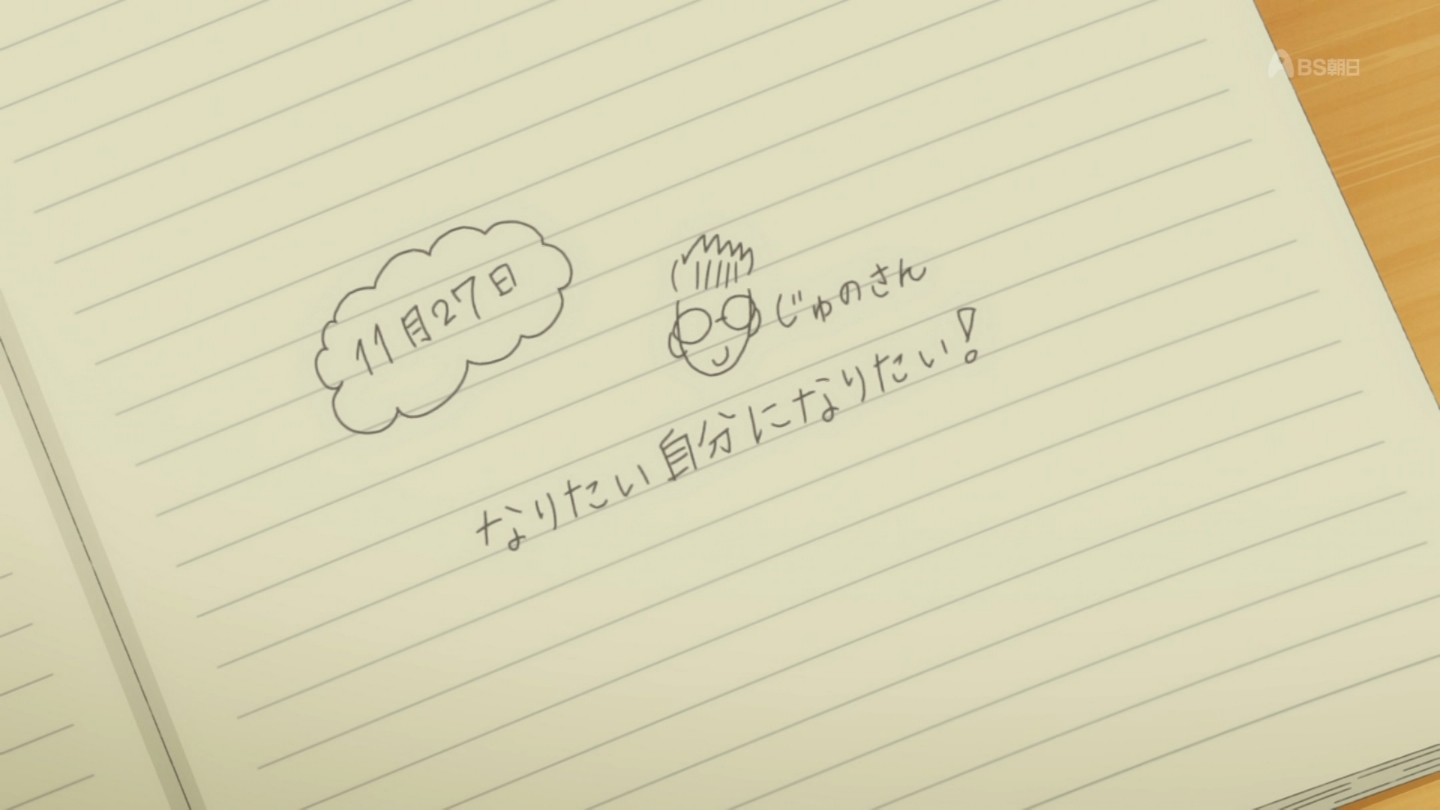 BS朝日
11月27日
じゅのさん
なりたい自分になりたい!